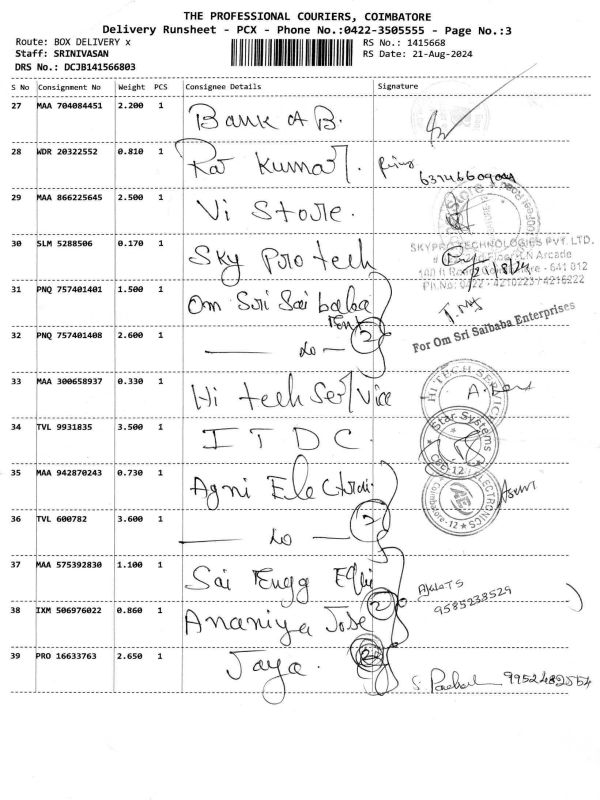 THE PROFESSIONAL COURIERS, COIMBATORE
Delivery Runsheet - PCX - Phone No.:0422-3505555 - Page No.:3
Route: BOX DELIVERY x
RS No.: 1415668
Staff: SRINIVASAN
RS Date: 21-Aug-2024
DRS No.: DCJB141566803
S No Consignment No Weight PCS Consignee Details Signature
27 MAA 704084451 2.200 1 Bank of B.
28 WDR 20322552 0.810 1 Raj Kumar.
29 MAA 866225645 2.500 1 Vi Store.
30 SLM 5288506 0.170 1 Sky Protech
SKYPROTECHNOLOGIES PVT. LTD.
Ph.No: 0422 - 4210223 / 4216222
31 PNQ 757401401 1.500 1 Om Sri Sai baba
Ent
For Om Sri Saibaba Enterprises
32 PNQ 757401408 2.600 1 — do — 2
33 MAA 300658937 0.330 1 Hi tech Service
HI TECH SERVICE
34 TVL 9931835 3.500 1 I T D C.
Star Systems
CBE-12
35 MAA 942870243 0.730 1 Agni Electroi
ELECTRONICS
Coimbatore-12
36 TVL 600782 3.600 1 — do — 2
37 MAA 575392830 1.100 1 Sai Engg
9585238529
38 IXM 506976022 0.860 1 Ananiya Jose 2
39 PRO 16633763 2.650 1 Jaya. 2
9952482554